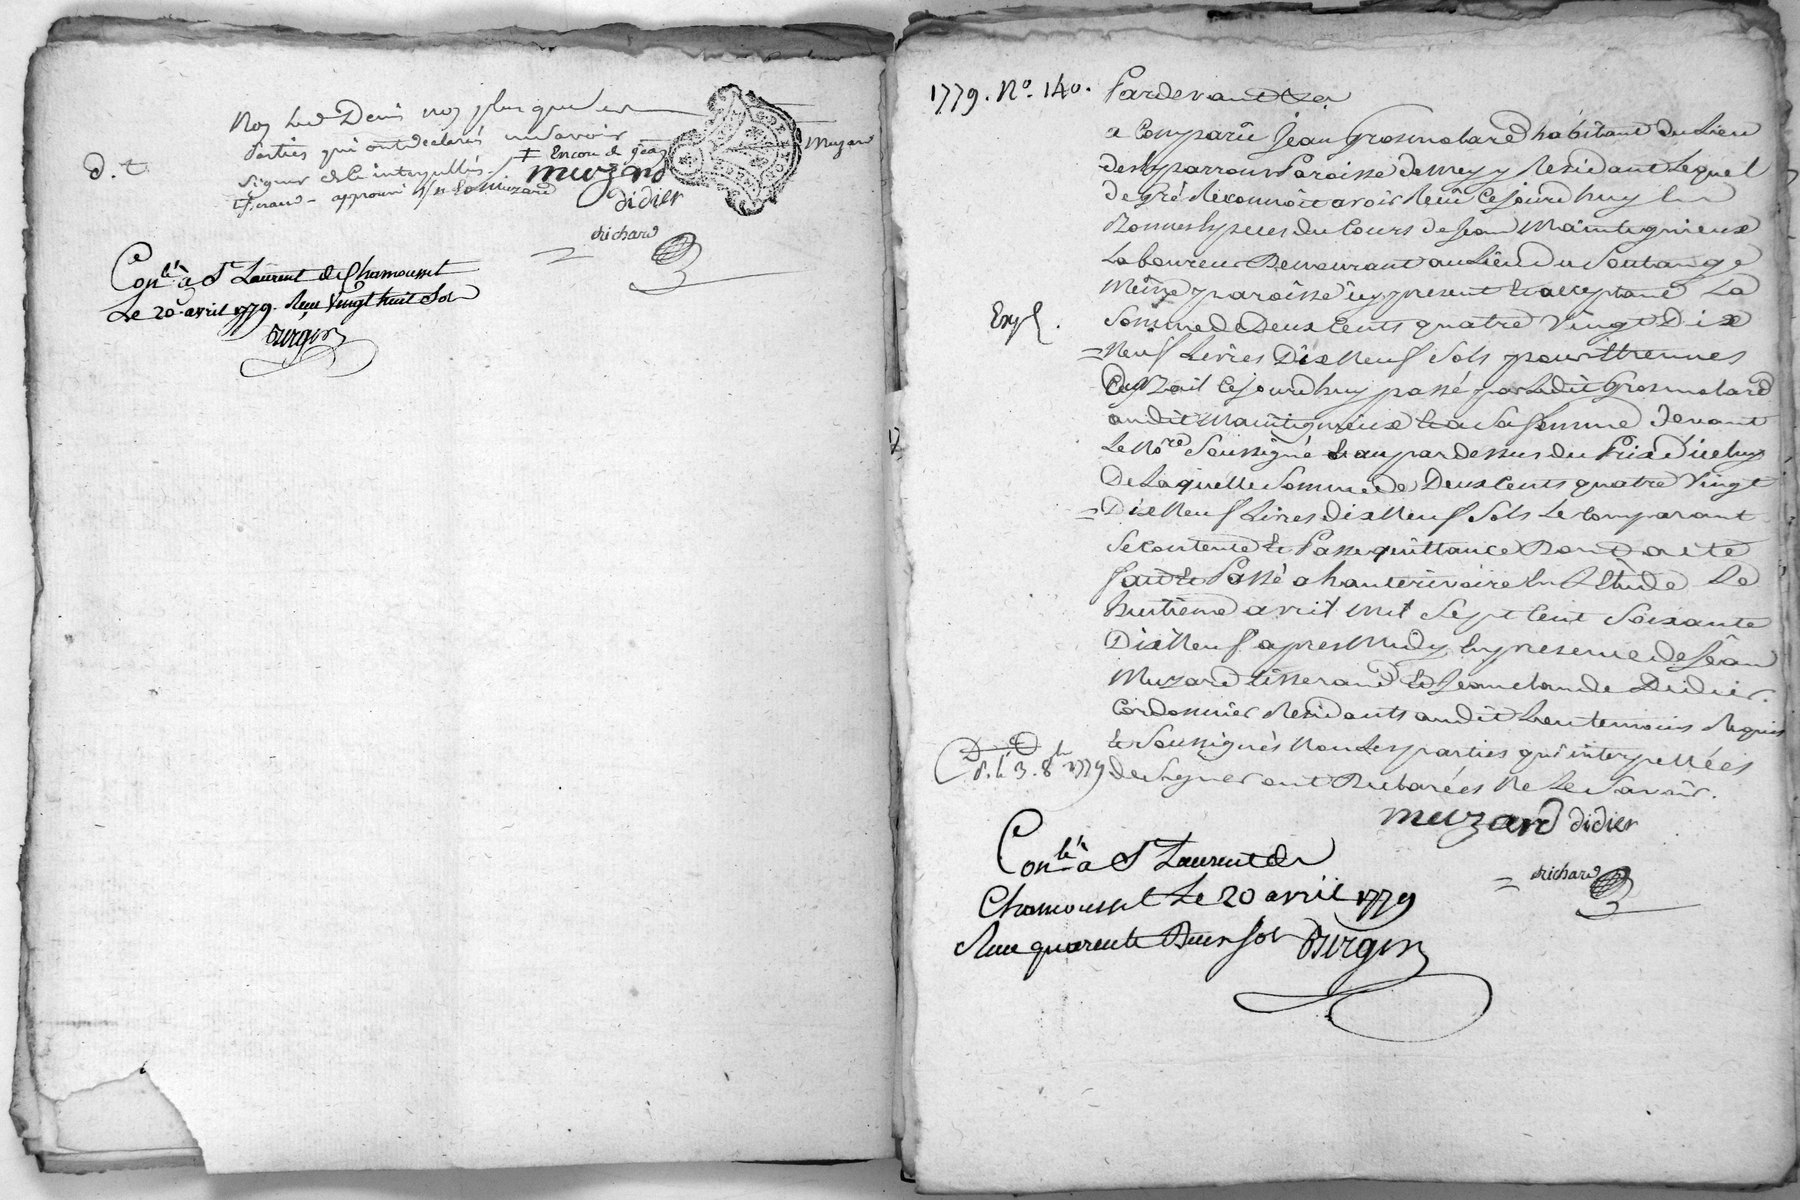 Non led Denis non plus que les
parties qui ont declarés ne savoir
signer de ce interpellés
d. t.
‡ Encore de jean
tisserand – approuvé Muzard
muzard
didier
Muzard
richard
Con.lé à St Laurent de Chamousset
Le 20 avril 1779. Reçu vingt huit sols
Burgin
1779. No. 140.
Pardevant
a comparû Jean Grosmolard habitant du Lieu
paroisse de mey y Residant Lequel
de gré Reconnoit avoir Reçu ce jourd'huy En
Bonnes Especes du Cours de Jean Maintigneux
Laboureur Demeurant au Lieu du Soulange
même paroisse icy present et acceptant La
Expé.
Somme de Deux Cents quatre Vingt Dix
= Neuf Livres Dix Neuf Sols pour Etrennes
Du Bail ce jourd'huy passé par Ledit Grosmolard
audit Maintigneux et a Sa femme devant
Le Nore Soussigné et au par dessus du Prix D'icelui
De Laquelle Somme de Deux Cents quatre Vingt
= Dix Neuf Livres dix Neuf Sols Le comparant
Se contente et Passe quittance Dont acte
fait et Passé a hauterivoire En L'Etude Le
huitieme avril mil Sept Cent Soixante
Dix Neuf apres Midy En presence de Jean
Muzard tisserand et Jean claude Didier
Cordonnier Residants audit Lieu temoins Requis
et Soussignés Non Les parties qui interpellées
de Signer ont Declarées Ne Le Savoir.
d. le 3. 8bre 1779
muzard didier
richard
Con.lé à St Laurent de
Chamousset Le 20 avril 1779
Reçu quarente Deux sols Burgin